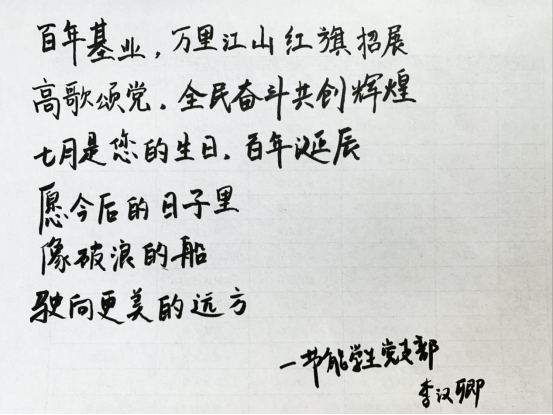 百年基业，万里江山红旗招展
高歌颂党，全民奋斗共创辉煌
七月是您的生日，百年诞辰
愿今后的日子里
像破浪的船
驶向更美的远方
一节能学生党支部
李汉卿